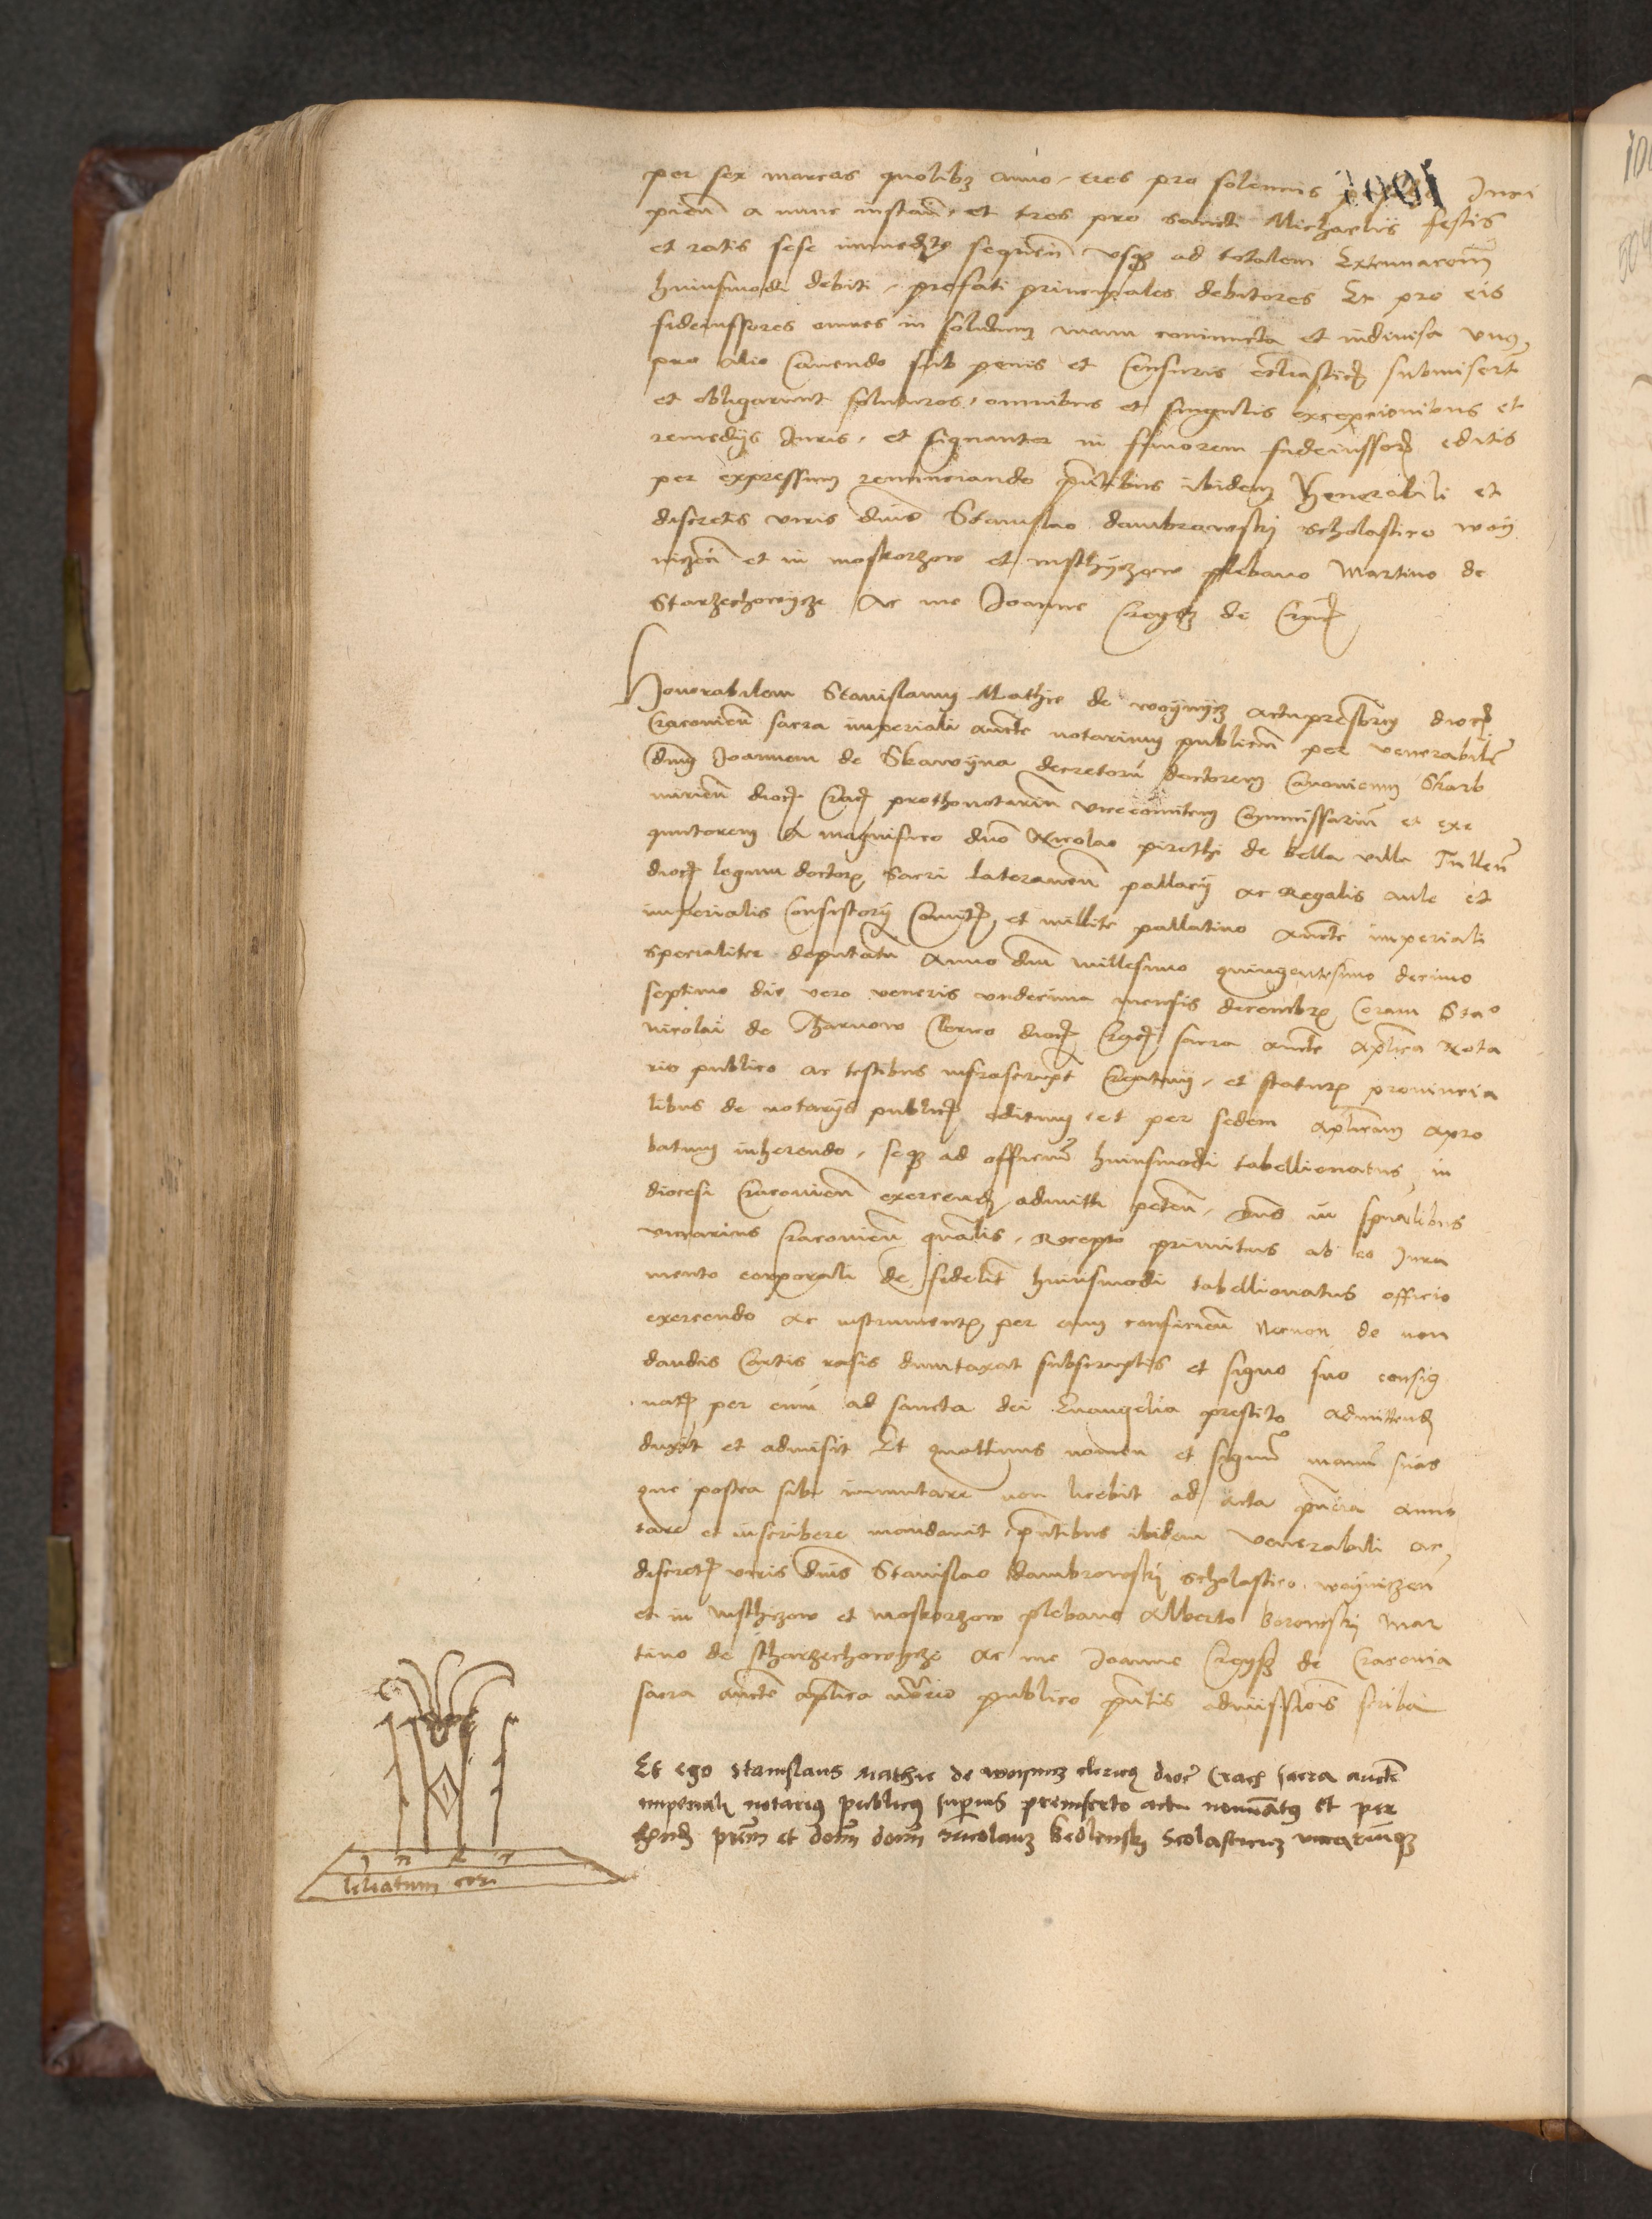 per sex marcas quolibz anno, tres pro solemnis Inci
pien a nunc instan et tres pro sancti Michaelis festis
et ratis sese immediate sequen usq ad totalem Extenuacom
huiusmodi debiti, prefati principales debitores Et pro eis
fideiussores omnes in solidum manu coniuncta et indivisa unus
pro alio Cavendo sub penis et Censuris ecclesiasticis submisert
et obligarunt soluturos, omnibus et singulis excepcionibus et
remedijs Juris, et signanter in favorem fideiussor editis
per expressum renunciando pntibus ibidem Venerabili et
discretis viris dnis Stanislao dambrowskj scholastico woy
nicen et in moskorzow et msthyczow plebano Martino de
Starzechowycze Ac me Joanne Creysz de Crac
Honorabilem Stanislaum Mathie de woynycz actupresbrm dioc
Cracovien sacra imperiali aucte notarium publicum per venerabile
dnm Joannem de Skawyna decretoru doctorem Canonicum Skarb
mirien dioc Crac prothonotarium vicecomitem Commissarium et exe
qutorem A magnifico dno Nicolao pirethi de bella villa Tullen
dioc legum doctore Sacri lateranen pallacij ac Regalis aule et
imperialis Consistorij Comite et millite pallatino Aucte imperiali
specialiter deputatu Anno dni millesimo quingentesimo decimo
septimo die vero veneris undecima mensis decembr Coram Stao
Nicolai de Tharnow Clerico dioc Crac sacra aucte aplica Nota
rio publico ac testibus infrascript Creatum, et statut provincia
libus de notarijs publicis editum et per sedem aplicam apro
batum inherendo, seq ad officium huiusmodi tabellionatus, in
diocesi Cracovien exercend admitti peten, dns in spualibus
vicarius Cracovien gnalis, Recepto primitus ab eo Jura
mento corporali de fidelit huiusmodi tabellionatus officio
exercendo ac instrumentis per eum conficien Necnon de non
dandis Cartis rasis dumtaxat subscriptis et signo suo consig
natis per eum ad sancta dei Evangelia prestito admittend
duxit et admisit Et quattinus nomen et signum manu suas
que postea sibi immutare non licebit ad acta pntia anno
tare et inscribere mandavit pntibus ibidem venerabili ac
discretis viris dnis Stanislao dambrowskj scholastico woyniczen
et in msthiczow et moskorzow plebano Alberto borowskj Mar
tino de Starzechowycze ac me Joanne Creysz de Cracovia
sacra aucte aplica notario publico pntis admissionis scriba
Et ego Stanislaus Mathie de woynicz clericus dioc Crac sacra aucte
imperiali notarius publicus superius preinserto actu nominatus et per
Rnd prem et dom dom Nicolaum Bedlenskj Scolasticum vicariumq
J n R J
liliatum cor